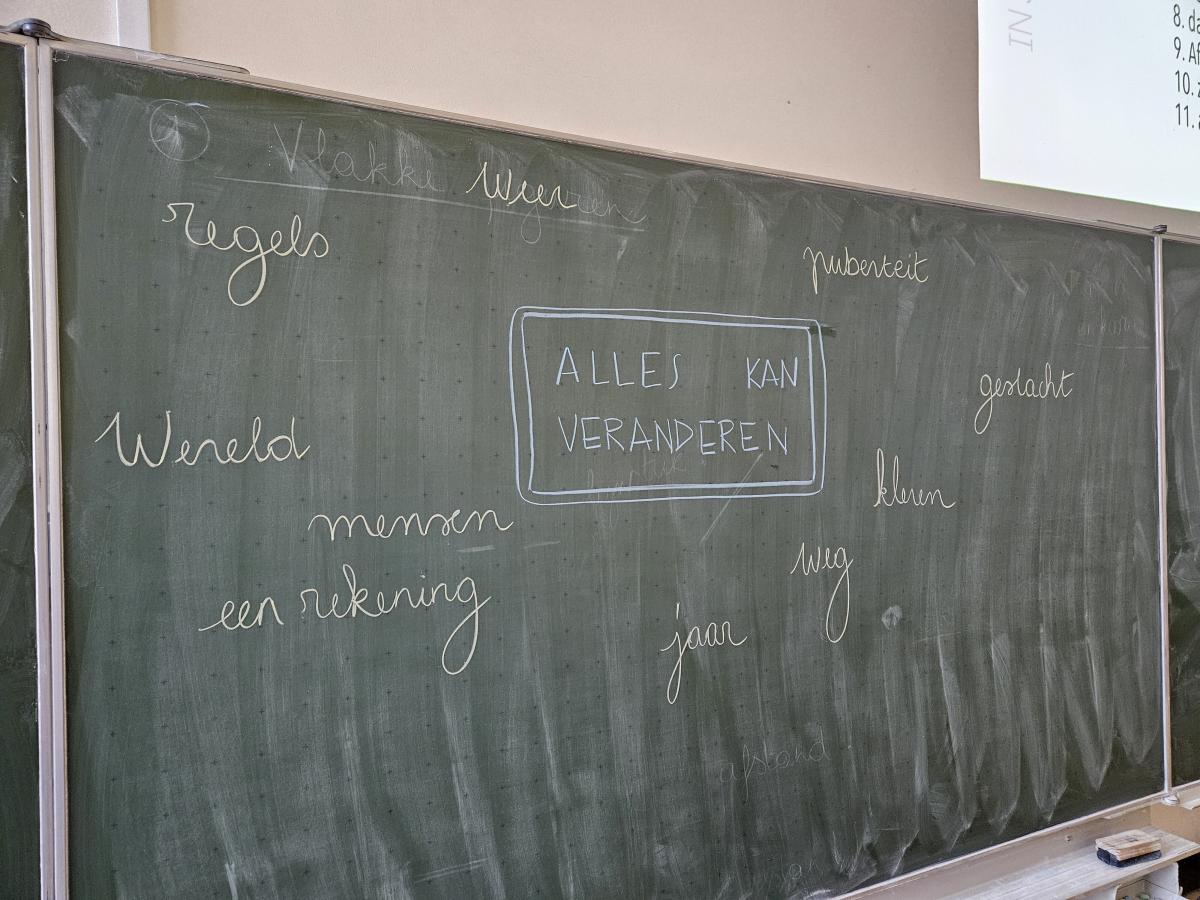 Vlakke
Weer
regels
puberteit
ALLES KAN
VERANDEREN
geslacht
Wereld
kleren
mensen
weg
een rekening
jaar
afstand
8. da
9. Af
10. z
11. a
IN